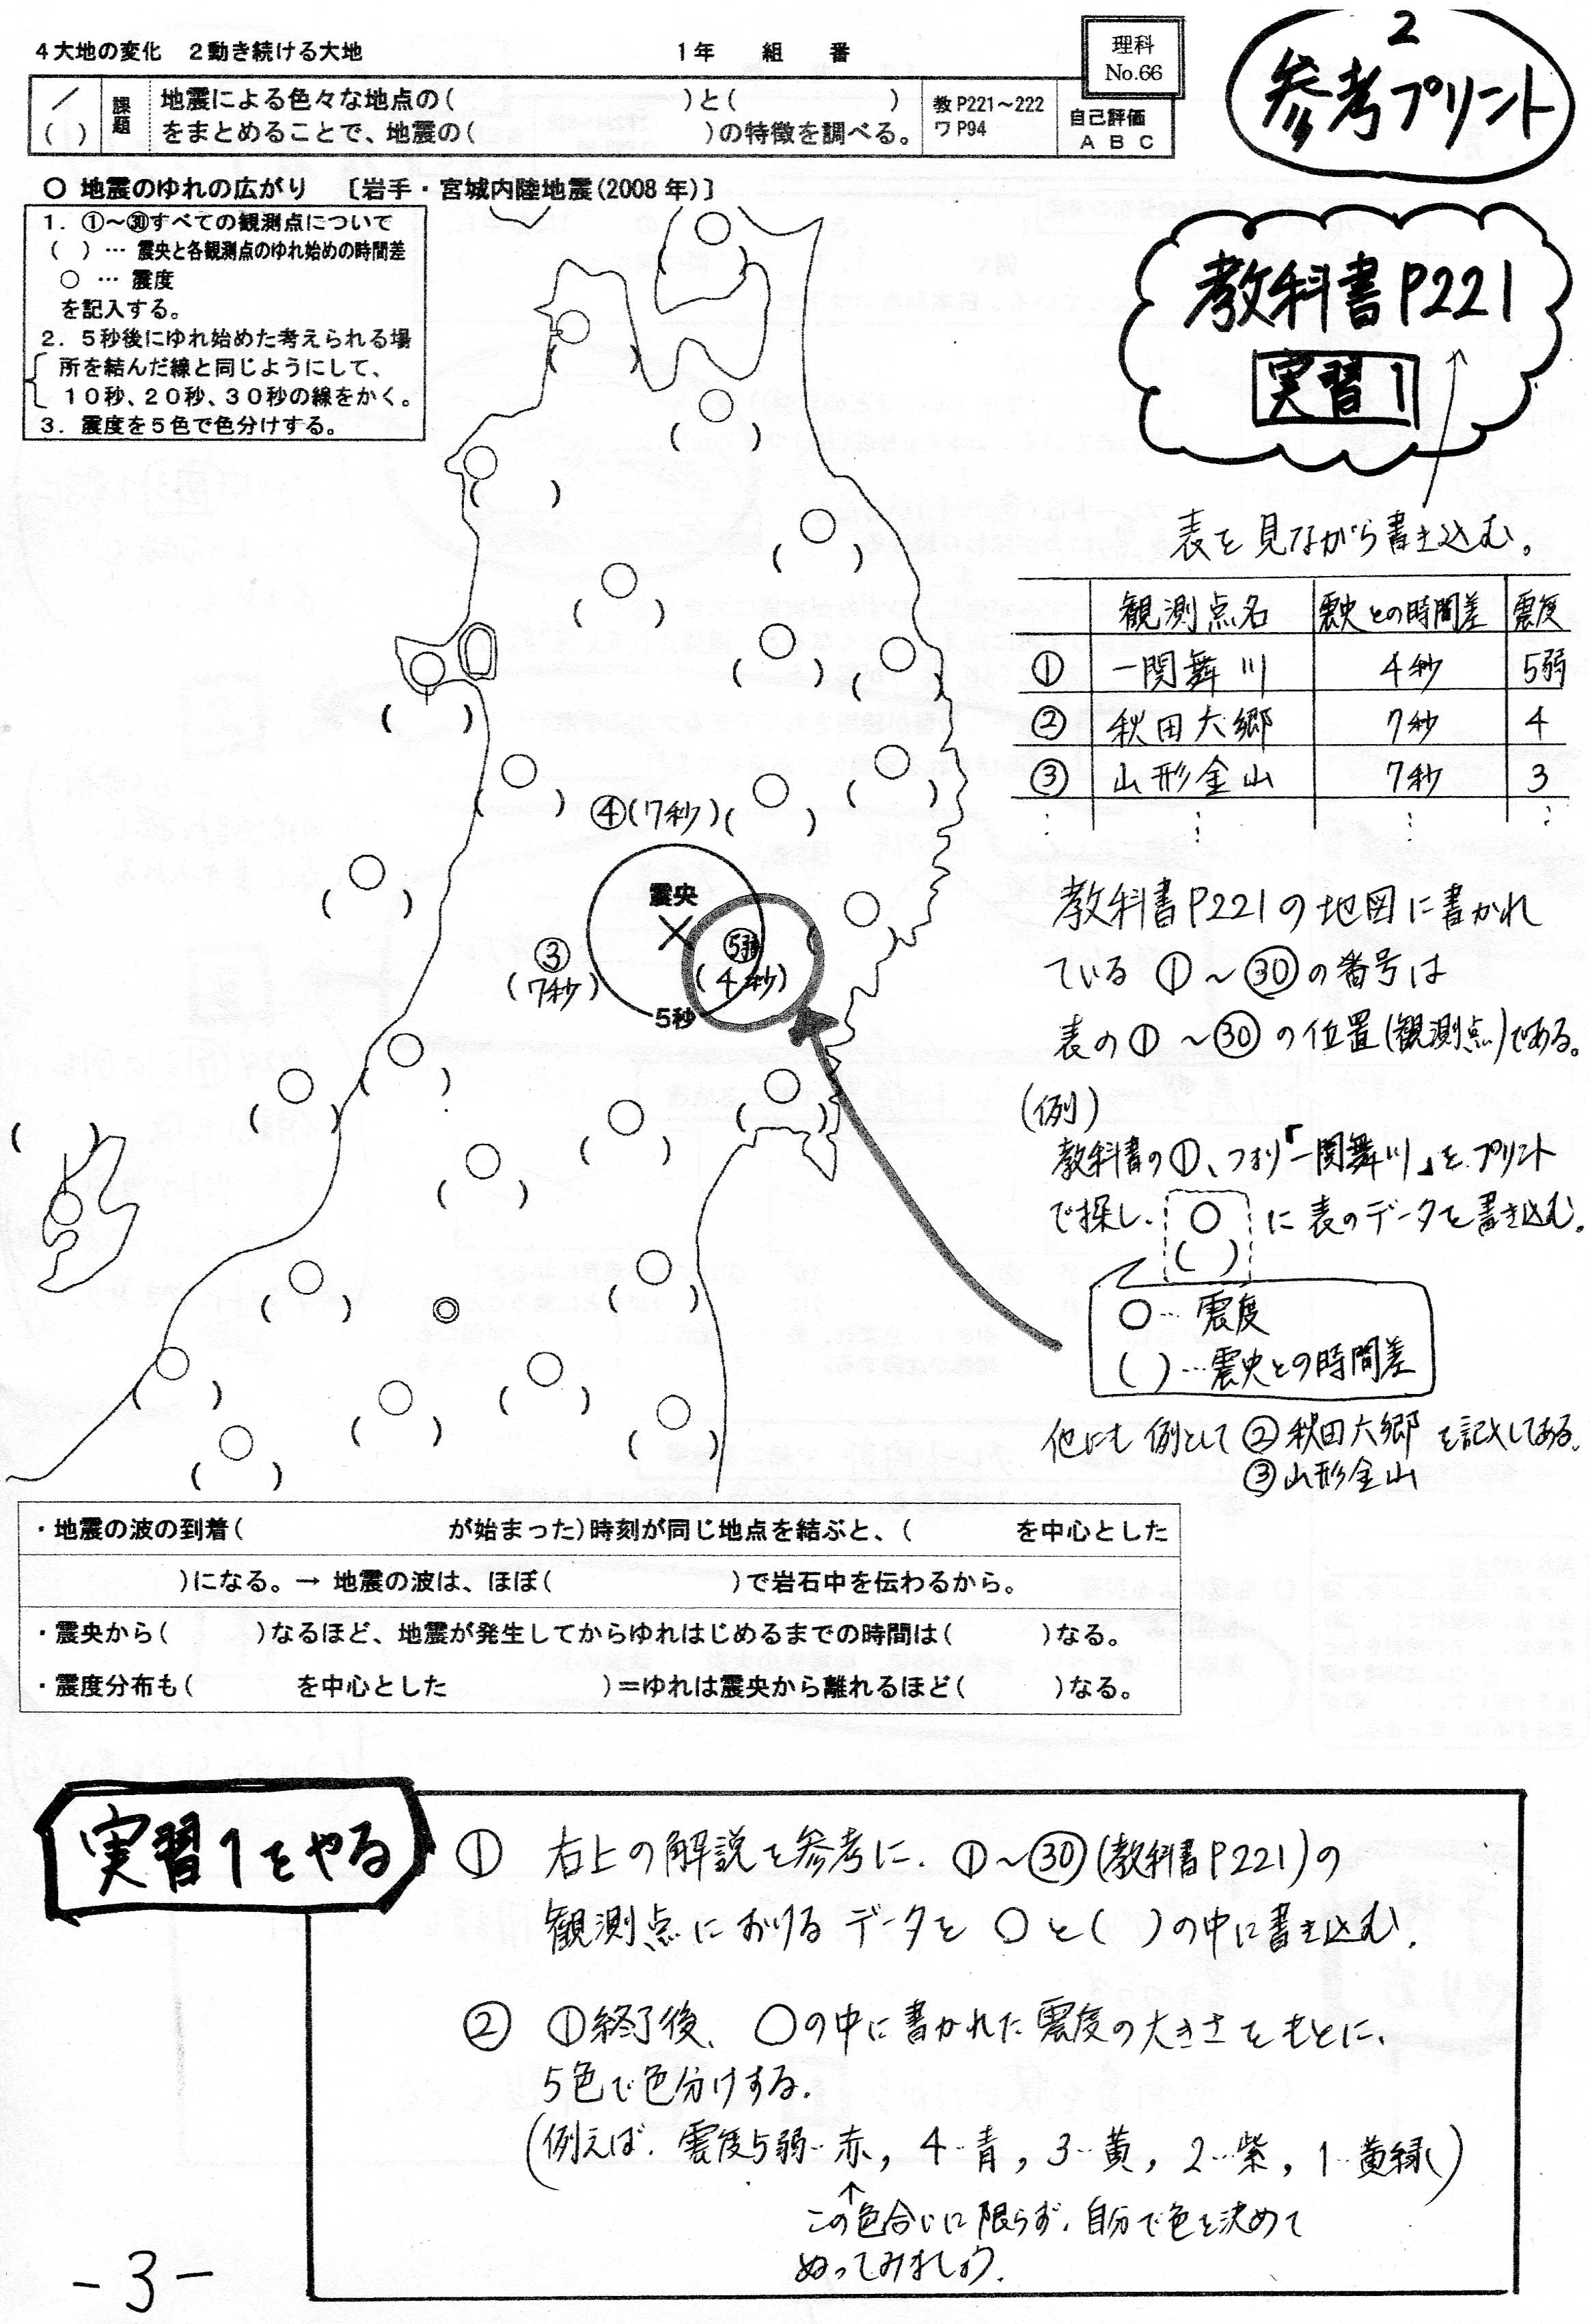 4大地の変化　2動き続ける大地
1年　組　番
理科
No.66
2
参考プリント
／
(　)
課題
地震による色々な地点の(　　　)と(　　　)
をまとめることで、地震の(　　　)の特徴を調べる。
教 P221～222
ワ P94
自己評価
A B C
○ 地震のゆれの広がり　〔岩手・宮城内陸地震(2008年)〕
1．①～㉚すべての観測点について
(　)… 震央と各観測点のゆれ始めの時間差
○ … 震度
を記入する。
2．5秒後にゆれ始めた考えられる場
所を結んだ線と同じようにして、
10秒、20秒、30秒の線をかく。
3．震度を5色で色分けする。
教科書P221
実習1
表を見ながら書き込む。
観測点名　震央との時間差　震度
① 一関舞川　4秒　5弱
② 秋田大郷　7秒　4
③ 山形金山　7秒　3
④(7秒)
震央
5弱
(4秒)
③
(7秒)
5秒
教科書P221の地図に書かれ
ている ①～㉚の番号は
表の①～㉚の位置(観測点)である。
(例)
教科書の①、つまり「一関舞川」をプリント
で探し、○(　)に表のデータを書き込む。
○… 震度
(　)…震央との時間差
他にも例として②秋田大郷を記入してある。
③山形金山
・地震の波の到着(　　　が始まった)時刻が同じ地点を結ぶと、(　　　を中心とした
　　　)になる。→ 地震の波は、ほぼ(　　　)で岩石中を伝わるから。
・震央から(　　　)なるほど、地震が発生してからゆれはじめるまでの時間は(　　　)なる。
・震度分布も(　　　を中心とした　　　)＝ゆれは震央から離れるほど(　　　)なる。
実習1をやる
① 右上の解説を参考に、①～㉚(教科書P221)の
観測点におけるデータを ○と(　)の中に書き込む。
② ①終了後、○の中に書かれた震度の大きさをもとに、
5色で色分けする。
(例えば、震度5弱…赤, 4…青, 3…黄, 2…紫, 1…黄緑)
↑
この色合いに限らず、自分で色を決めて
ぬってみましょう。
-3-